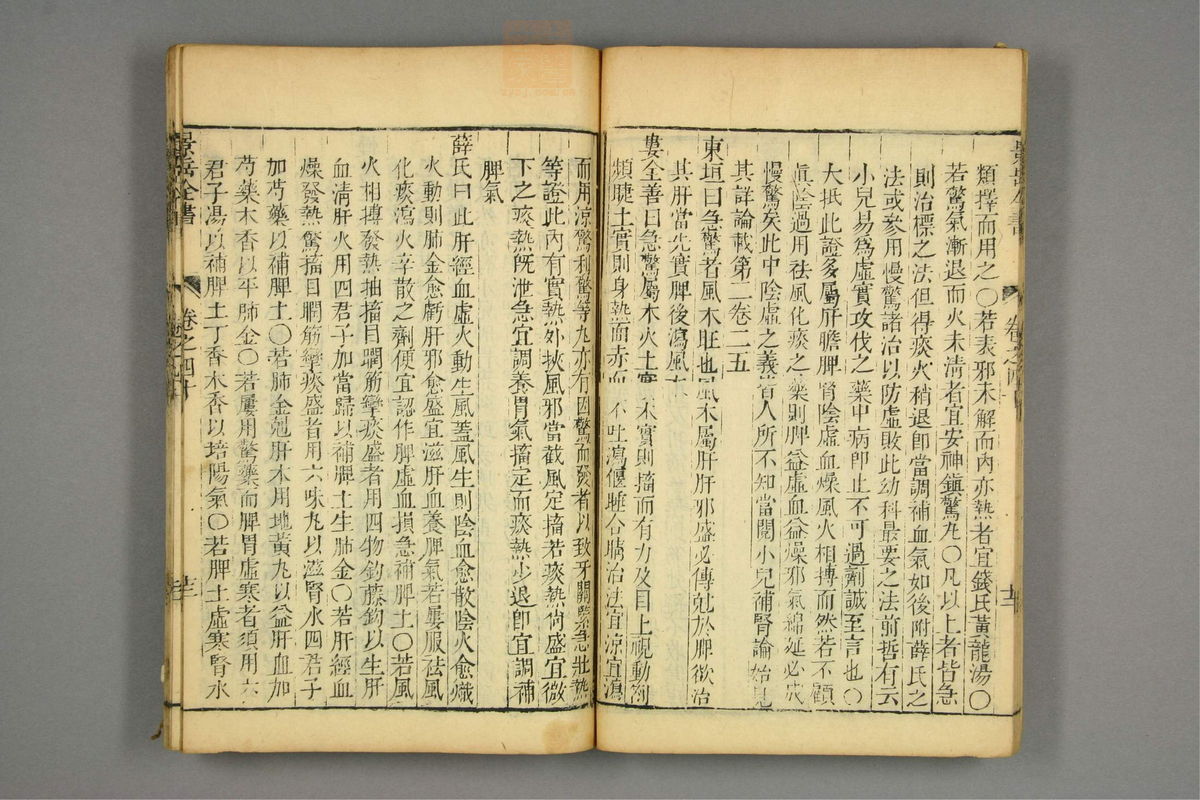 類擇而用之○若表邪未解而內亦熱者宜錢氏黃龍湯○
若驚氣漸退而火未清者宜安神鎮驚丸○凡以上者皆急
則治標之法但得痰火稍退卽當調補血氣如後附薛氏之
法或參用慢驚諸治以防虛敗此幼科最要之法前哲有云
小兒易爲虛實攻伐之藥中病卽止不可過劑誠至言也○
大抵此證多屬肝膽脾腎陰虛血燥風火相搏而然若不顧
眞陰過用祛風化痰之藥則脾益虛血益燥邪氣綿延必成
慢驚矣此中陰虛之義皆人所不知當閱小兒補腎論始見
其詳論載第二卷二五
東垣曰急驚者風木旺也風木屬肝肝邪盛必傳尅於脾欲治
其肝當先實脾後瀉風木
婁全善曰急驚屬木火土實木實則搐而有力及目上視動劄
頻睫土實則身熱面赤而不吐瀉偃睡合睛治法宜涼宜瀉
而用涼驚利驚等丸亦有因驚而發者以致牙關緊急壯熱
等證此內有實熱外挾風邪當截風定搐若痰熱尚盛宜微
下之痰熱旣泄急宜調養胃氣搐定而痰熱少退卽宜調補
脾氣
薛氏曰此肝經血虛火動生風蓋風生則陰血愈散陰火愈熾
火動則肺金愈虧肝邪愈盛宜滋肝血養脾氣若屢服祛風
化痰瀉火辛散之劑便宜認作脾虛血損急補脾土○若風
火相搏發熱抽搐目瞤筋攣痰盛者用四物鈎藤鈎以生肝
血清肝火用四君子加當歸以補脾土生肺金○若肝經血
燥發熱驚搐目瞤筋攣痰盛者用六味丸以滋腎水四君子
加芍藥以補脾土○若肺金尅肝木用地黃丸以益肝血加
芍藥木香以平肺金○若屢用驚藥而脾胃虛寒者須用六
君子湯以補脾土丁香木香以培陽氣○若脾土虛寒腎水
景岳全書
卷之四十